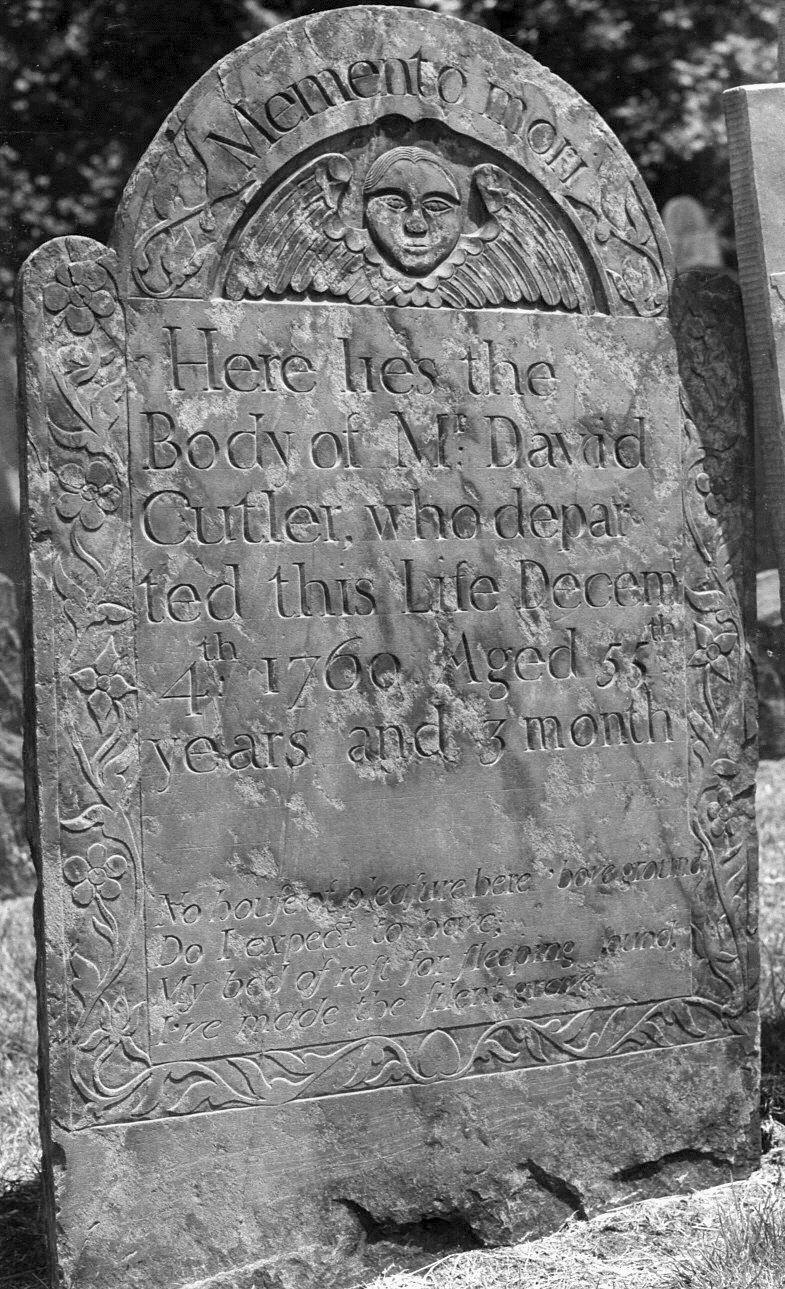 Memento mori
Here lies the
Body of Mr. David
Cutler, who depar
ted this Life Decem
4th. 1760 Aged 55th
years and 3 month
No houſe of pleaſure here 'bove ground
Do I expect to have;
My bed of reſt for ſleeping found,
I've made the ſilent grave.